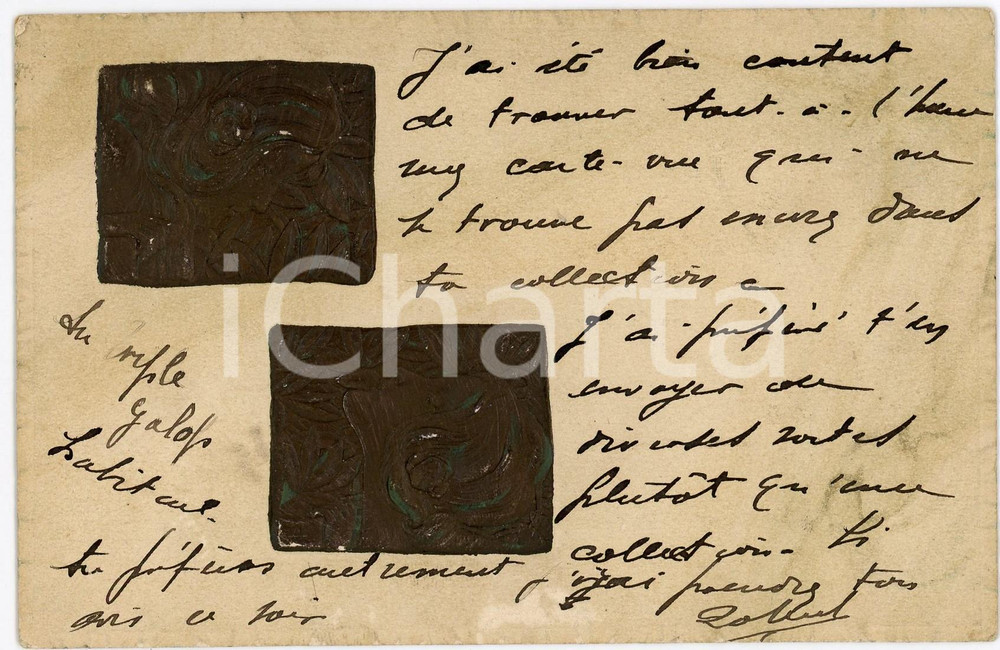 J'ai été bien content
de trouver tout-à-l'heure
une carte-vue qui ne
se trouve pas encore dans
ta collection
J'ai préféré t'en
envoyer de
diverses sortes
plutôt qu'une
collection. Si
tu préfères autrement j'irai prendre ton
avis ce soir
galop
habituel.
iCharta